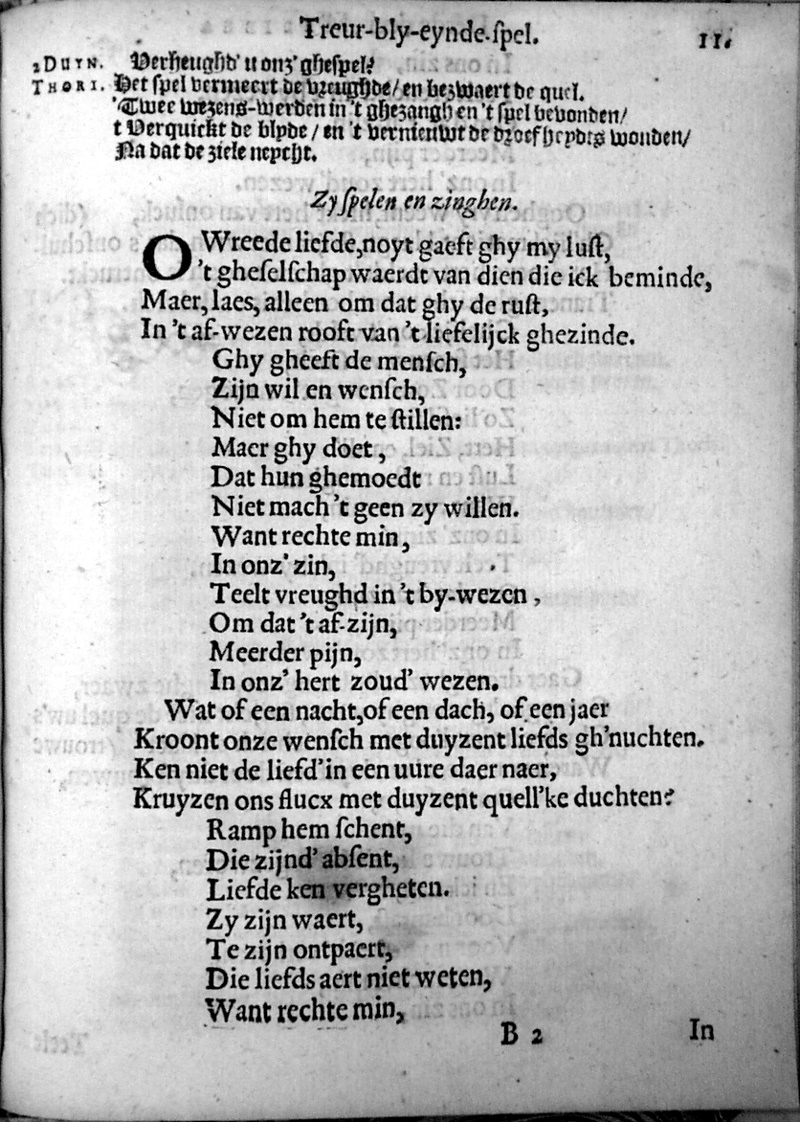 Treur-bly-eynde-spel. 11.
2 DUYN. Verheughd' u onz' ghespel?
THORI. Het spel vermeert de vreughde/ en bezwaert de quel.
'Twee wezens-werden in 't ghezangh en 't spel bevonden/
't Verquickt de blyde/ en 't vernieuwt de droefheyds wonden/
Na dat de ziele neycht.
Zy spelen en zinghen.
O Wreede liefde, noyt gaeft ghy my lust,
't ghefelschap waerdt van dien die ick beminde,
Maer, laes, alleen om dat ghy de rust,
In 't af-wezen rooft van 't liefelijck ghezinde.
Ghy gheeft de mensch,
Zijn wil en wensch,
Niet om hem te stillen:
Maer ghy doet,
Dat hun ghemoedt
Niet mach 't geen zy willen.
Want rechte min,
In onz' zin,
Teelt vreughd in 't by-wezen,
Om dat 't af-zijn,
Meerder pijn,
In onz' hert zoud' wezen.
Wat of een nacht, of een dach, of een jaer
Kroont onze wensch met duyzent liefds gh'nuchten.
Ken niet de liefd' in een uure daer naer,
Kruyzen ons flucx met duyzent quell'ke duchten?
Ramp hem schent,
Die zijnd' absent,
Liefde ken vergheten.
Zy zijn waert,
Te zijn ontpaert,
Die liefds aert niet weten,
Want rechte min,
B 2 In